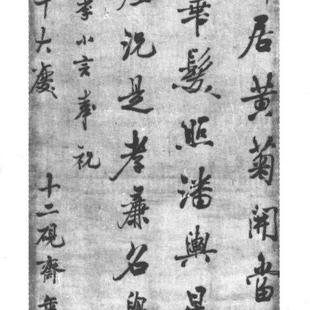 居黃菊開當
華髮照潘輿
況是孝廉名
李小言奉祝
十大慶
十二硯齋